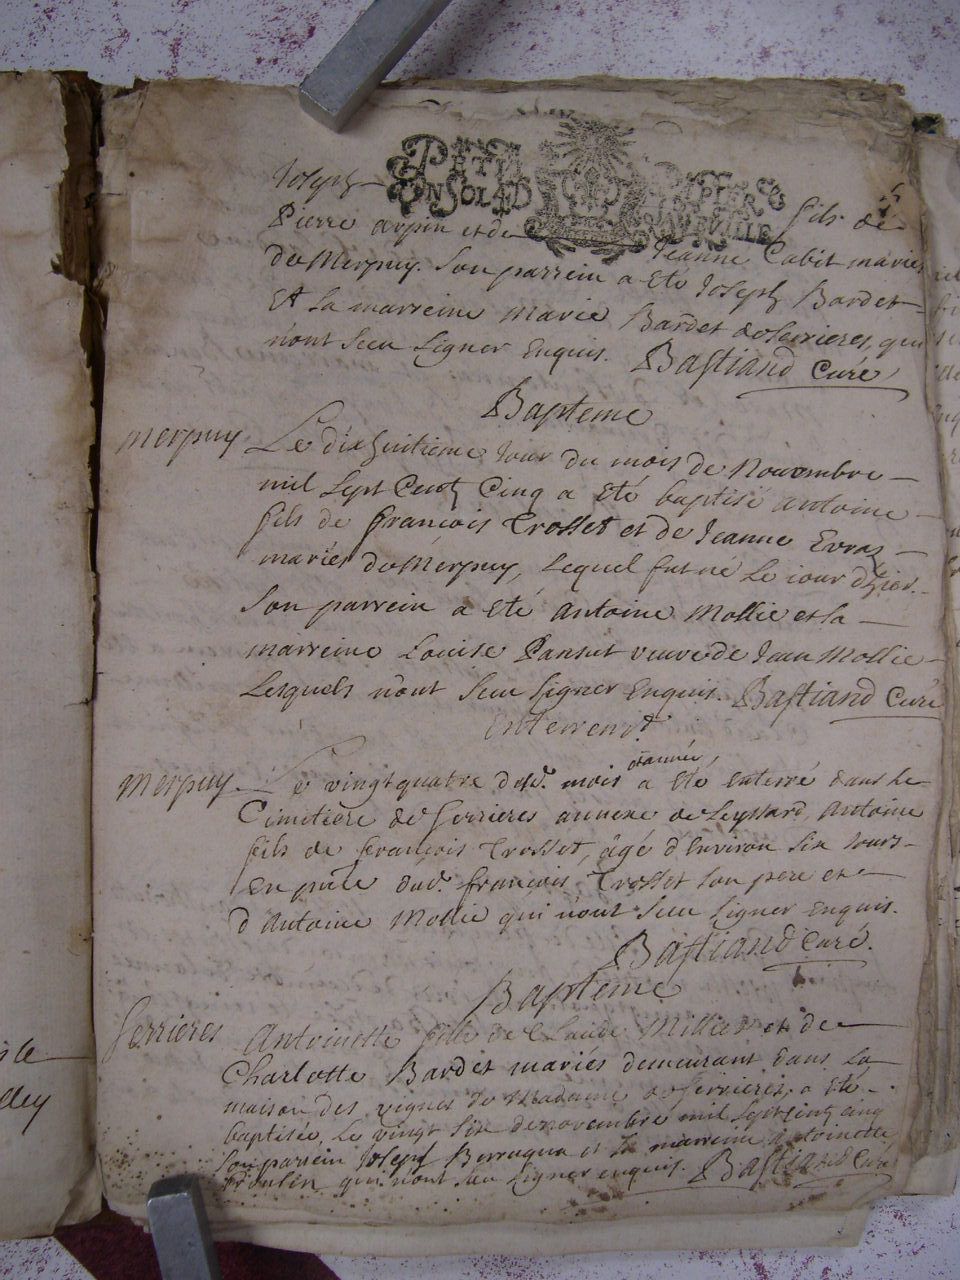 PETIT PAPIER
UN SOL 4 D
Joseph fils de
Pierre arpin et de Jeanne Cabit mariés
de Merpuy. Son parrein a eté Joseph Bardet
Et la marreine Marie Bardet de Serrieres, qui
n'ont sceu signer Enquis. Bastiand Curé
Bapteme
Merpuy Le dixhuitieme Jour du mois de Novembre
mil sept Cent Cinq a eté baptisé antoine
fils de françois Trosset et de Jeanne Evraz
mariés de Merpuy, Lequel fut né Le iour d'hier.
Son parrein a eté antoine Mollie et la
marreine Louise Pansut veuve de Jean Mollie
Lesquels n'ont sceu signer Enquis. Bastiand Curé
Enterremt
Merpuy Le vingtquatre dud. mois et année, a eté enterré dans le
Cimitiere de Serrieres annexe de Leyssard, Antoine
fils de françois Trosset, âgé d'Environ six Jours
En pnce dud. françois Trosset son pere et
d'Antoine Mollie qui n'ont sceu signer Enquis.
Bastiand Curé.
Bapteme
Serrieres Antoinette fille de Claude Millier et de
Charlotte Bardet mariés demeurant dans la
maison des vignes de Madame de Serrieres, a eté
baptisée, Le vingt six de novembre mil sept cent cinq
son parrein Joseph Berrugua et la marreine antoinette
qui n'ont sceu signer enquis. Bastiand Curé